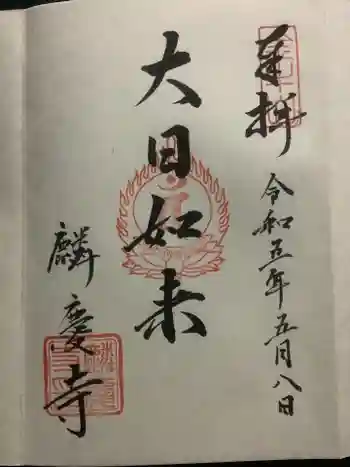 奉拝
令和五年五月八日
大日如来
麟慶寺